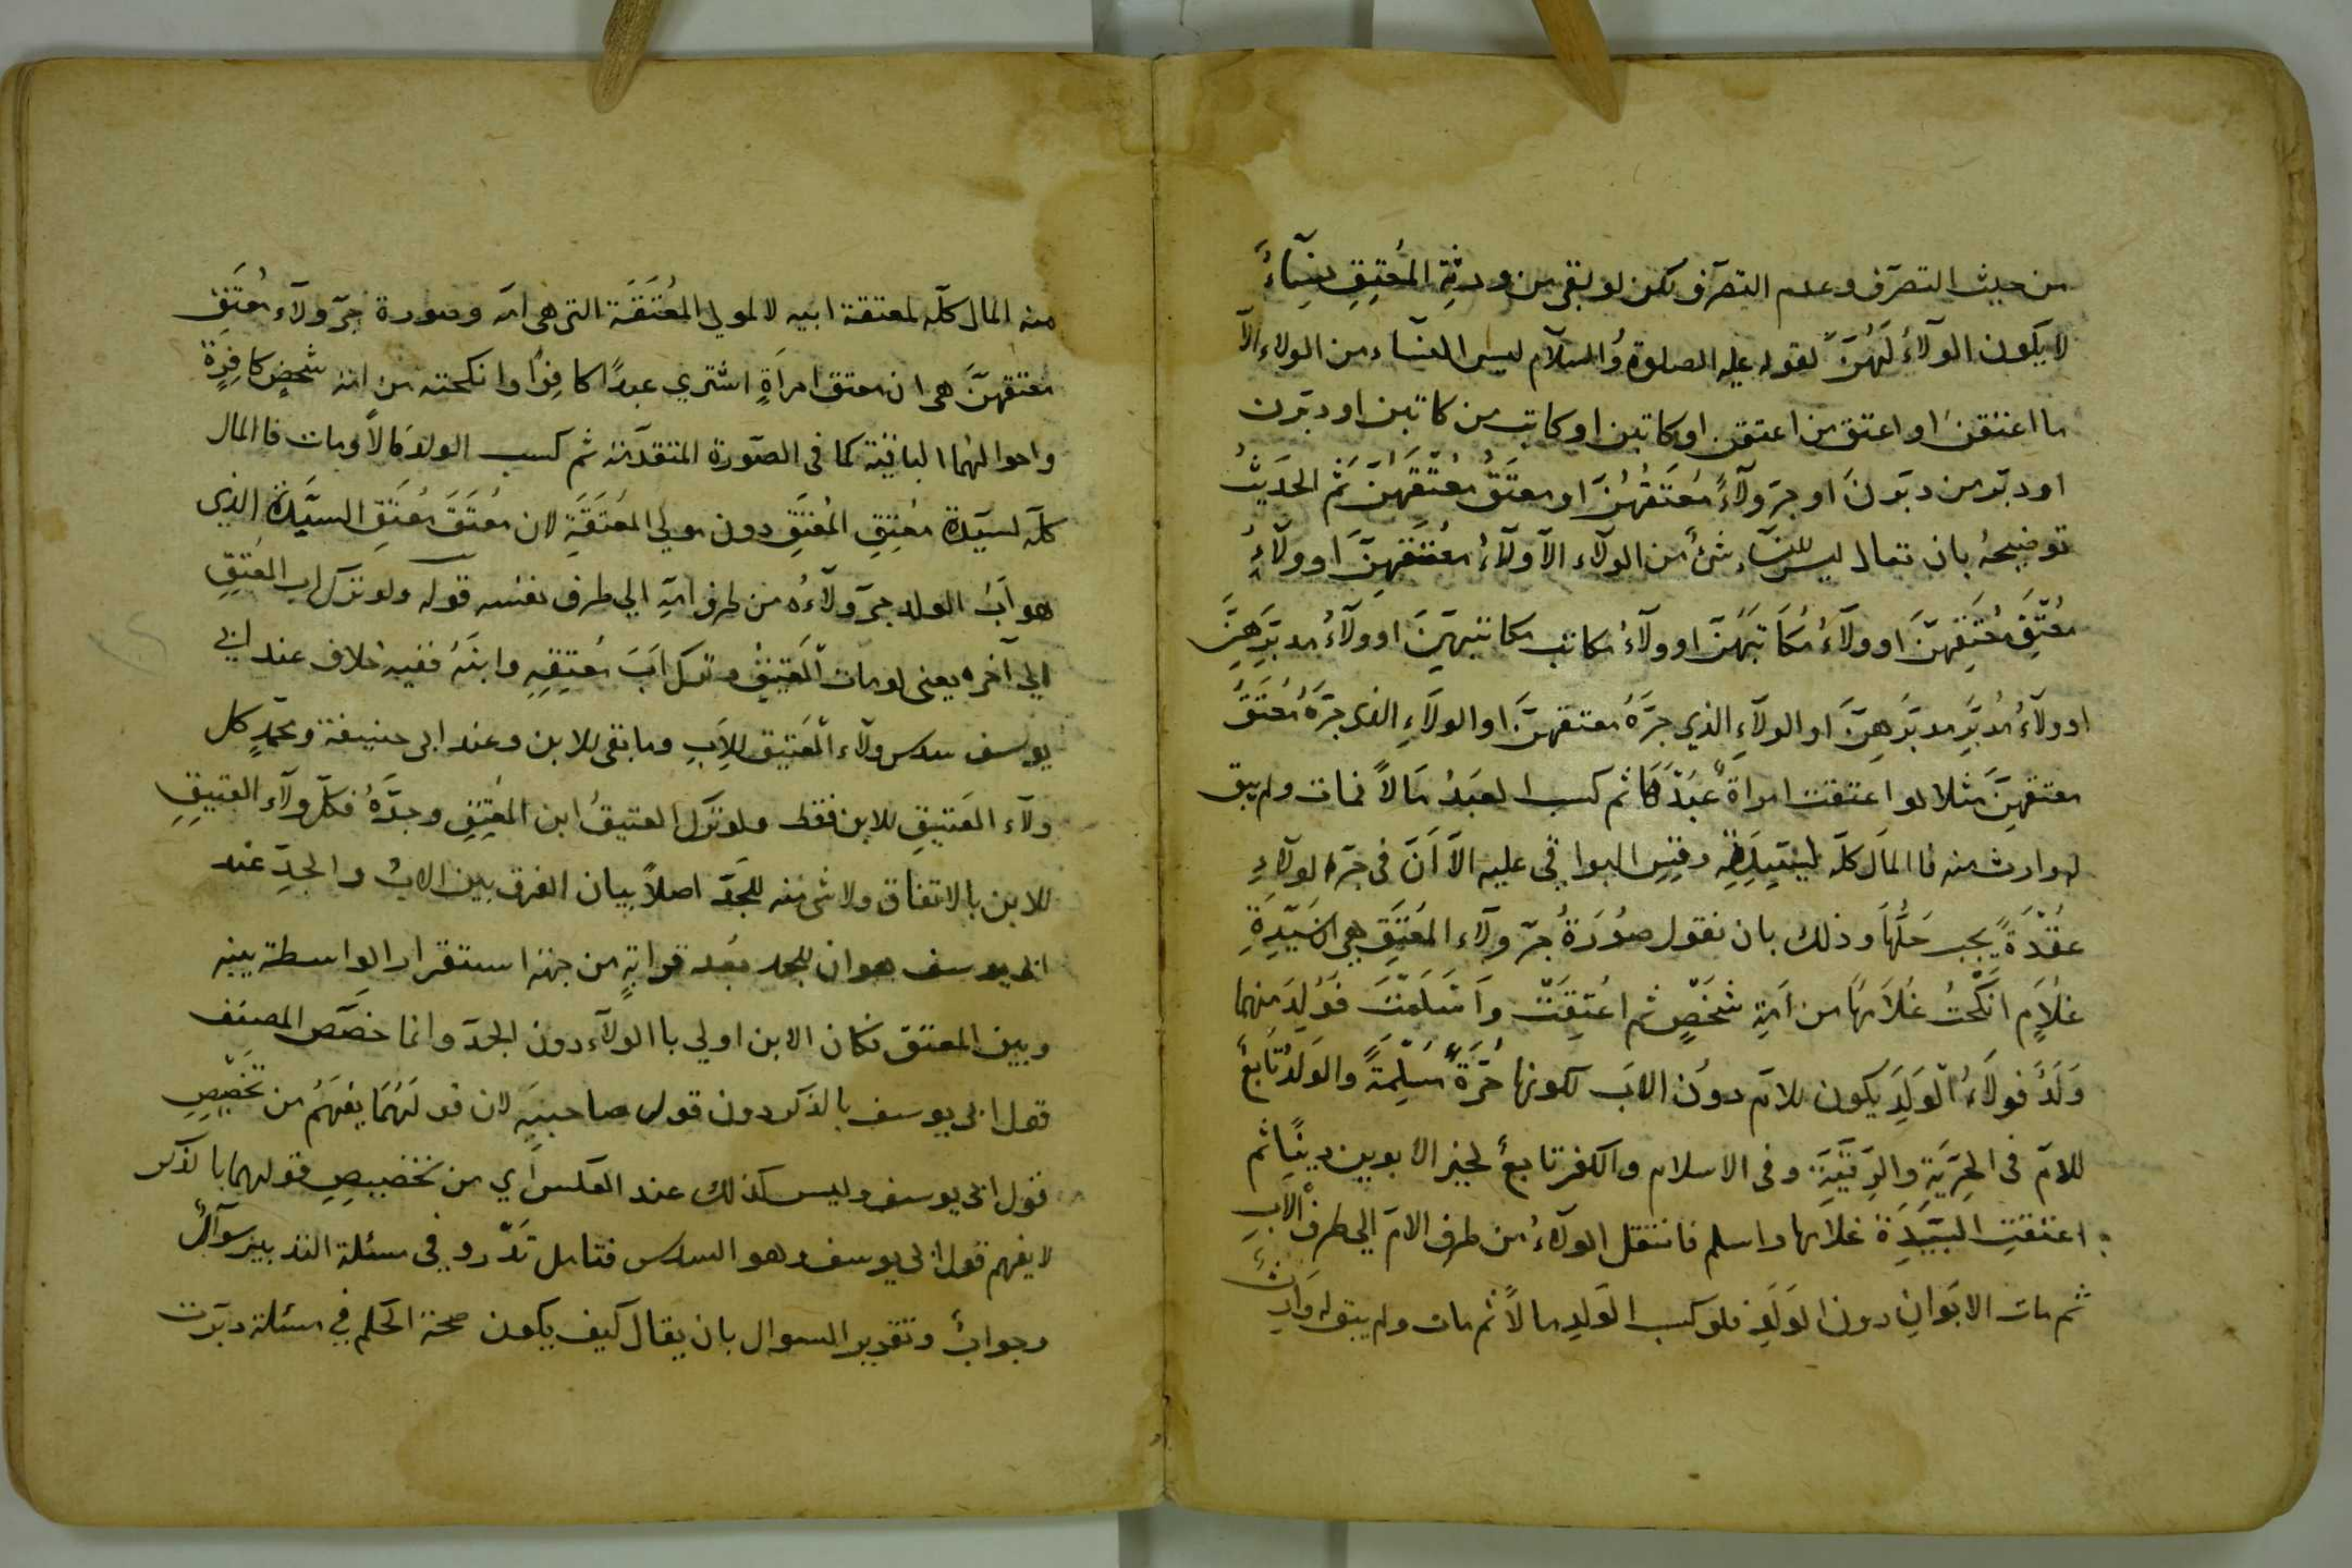 من حيث التصرّف وعدم التصرّف لكن لو بقى من ورثةِ المُعتِقِ نِسَاءً
لا يكون الولآءُ لَهُنَّ لقوله عليه الصلوة والسلام ليس للنسآء من الولاء الّا
ما اعتقن او اعتق من اعتقن او كاتبن او كاتب من كاتبن او دبّرن
او دبّر من دبّرنَ او جرّ ولآءً مُعتَقُهُنَّ او معتَقُ مُعْتَقِهِنَّ ثم الحديث
توضيحهُ بان تعال ليس للنسآء شئ من الولآء الّا ولآءُ مُعتَقِهِنَّ او ولآءُ
مُعْتَقِ مُعْتَقِهِنَّ او ولآءُ مُكَاتَبِهِنَّ او ولآءُ مكاتب مكاتبهنَّ او ولآءُ مدبَّرِهِنَّ
او ولآءُ مُدبَّرِ مدبَّرِهِنَّ او الولآءِ الذي جرَّهُ معتقهنّ او الولآءِ الذى جرَّهُ مُعتَقُ
معتقهِنَّ مثلا لو اعتقت امراةٌ عَبْدًا ثم كسب العَبْدُ مَالًا فمات ولم يبق
له وارث منه فالمال كلّه لسيّدته وقِسِ البواقى عليه الّا اَنَّ فى جرّ الولآءِ
عُقْدَةً يجب حَلُّهَا وذلك بان نقول صُورَةُ جرّ ولآء المُعتَقِ هى ان سَيِّدَةِ
غُلَامٍ انكَحْتْ غُلَامَهَا من اَمَةِ شَخْصٍ ثم اُعْتِقَتْ وَاَسْلَمَتْ فَوُلِدَ منهما
وَلَدٌ فولآءُ الوَلَدِ يكون للام دون الابَ لكونها حُرَّةً مُسْلِمَةً والولدُ تَابعٌ
للامّ فى الحرّيّةِ والرِّقيَّةِ وفى الاسلام والكفر تابعٌ لخير الابوين دِينًا ثم
اعتقتِ السَّيِّدَةُ غلامها واسلم فانتقل الولآءُ من طرف الامّ الى طرف الابِ
ثم مات الابَوانِ دون الوَلَدِ فلو كسب الوَلدِ مالًا ثم مات ولم يبق له وارث
منه المال كلّه لمعتقة ابيه لا لمولى المُعْتَقَة التى هى امّه وصورة جرّ ولآء مُعتَقِ
مُعتَقِهِنَّ هى ان معتق امراَةٍ اشترى عبدًا كافِرًا وانكحته من امَة شخصٍ كافِرةٍ
واحوالهُما الباقية كما فى الصّورة المتقدّمة ثم كسب الولد مَالًا ومات فالمال
كلّه لسيّدة مُعْتِقِ المُعْتَقِ دون مولى المُعتَقَةِ لان مُعْتَقَ مُعتَقِ السيّدة الذى
هو اَبُ الولد جرّ ولآءُه من طرف امّهِ الى طرف نفسه قوله ولو ترك اب المُعتِقِ
الى آخره يعنى لو مات العَتِيقُ وترك اَبَ مُعتِقِهِ وابنَهُ ففيه خلاف عند ابى
يوسف سدس ولآء العَتِيق للاَبِ وما بقى للابن وعند ابى حنيفة ومحمّدٍ كل
ولآء العَتِيقِ للابن فقط ولو ترك العتيقُ ابن المُعتِقِ وجدّهُ فكلّ ولآءِ العتيقِ
للابن بالاتفاق ولا شئ منه للجدّ اصلًا بيان الفرق بين الابِ والجدِّ عند
ابى يوسف هو ان للجد بُعد قرابةٍ من جهة استقرار الواسطة بينه
وبين المعتق فكان الابن اولى بالولآء دون الجدّ وانما خصّص المصنف
قول ابى يوسف بالذكر دون قول صاحبيه لان قولَهُمَا يفهَمُ من تخصيصِ
قول ابى يوسف وليس كذلك عند العكس اَي من تخصيصِ قولهما بالذكر
لا يفهم قول ابى يوسف وهو السدس فتامل تدّر وفى مسئلة التدبير سوآلٌ
وجوابٌ وتقدير السوال بان يقال كيف يكون صحة الحكم فى مسئلة دبّرت